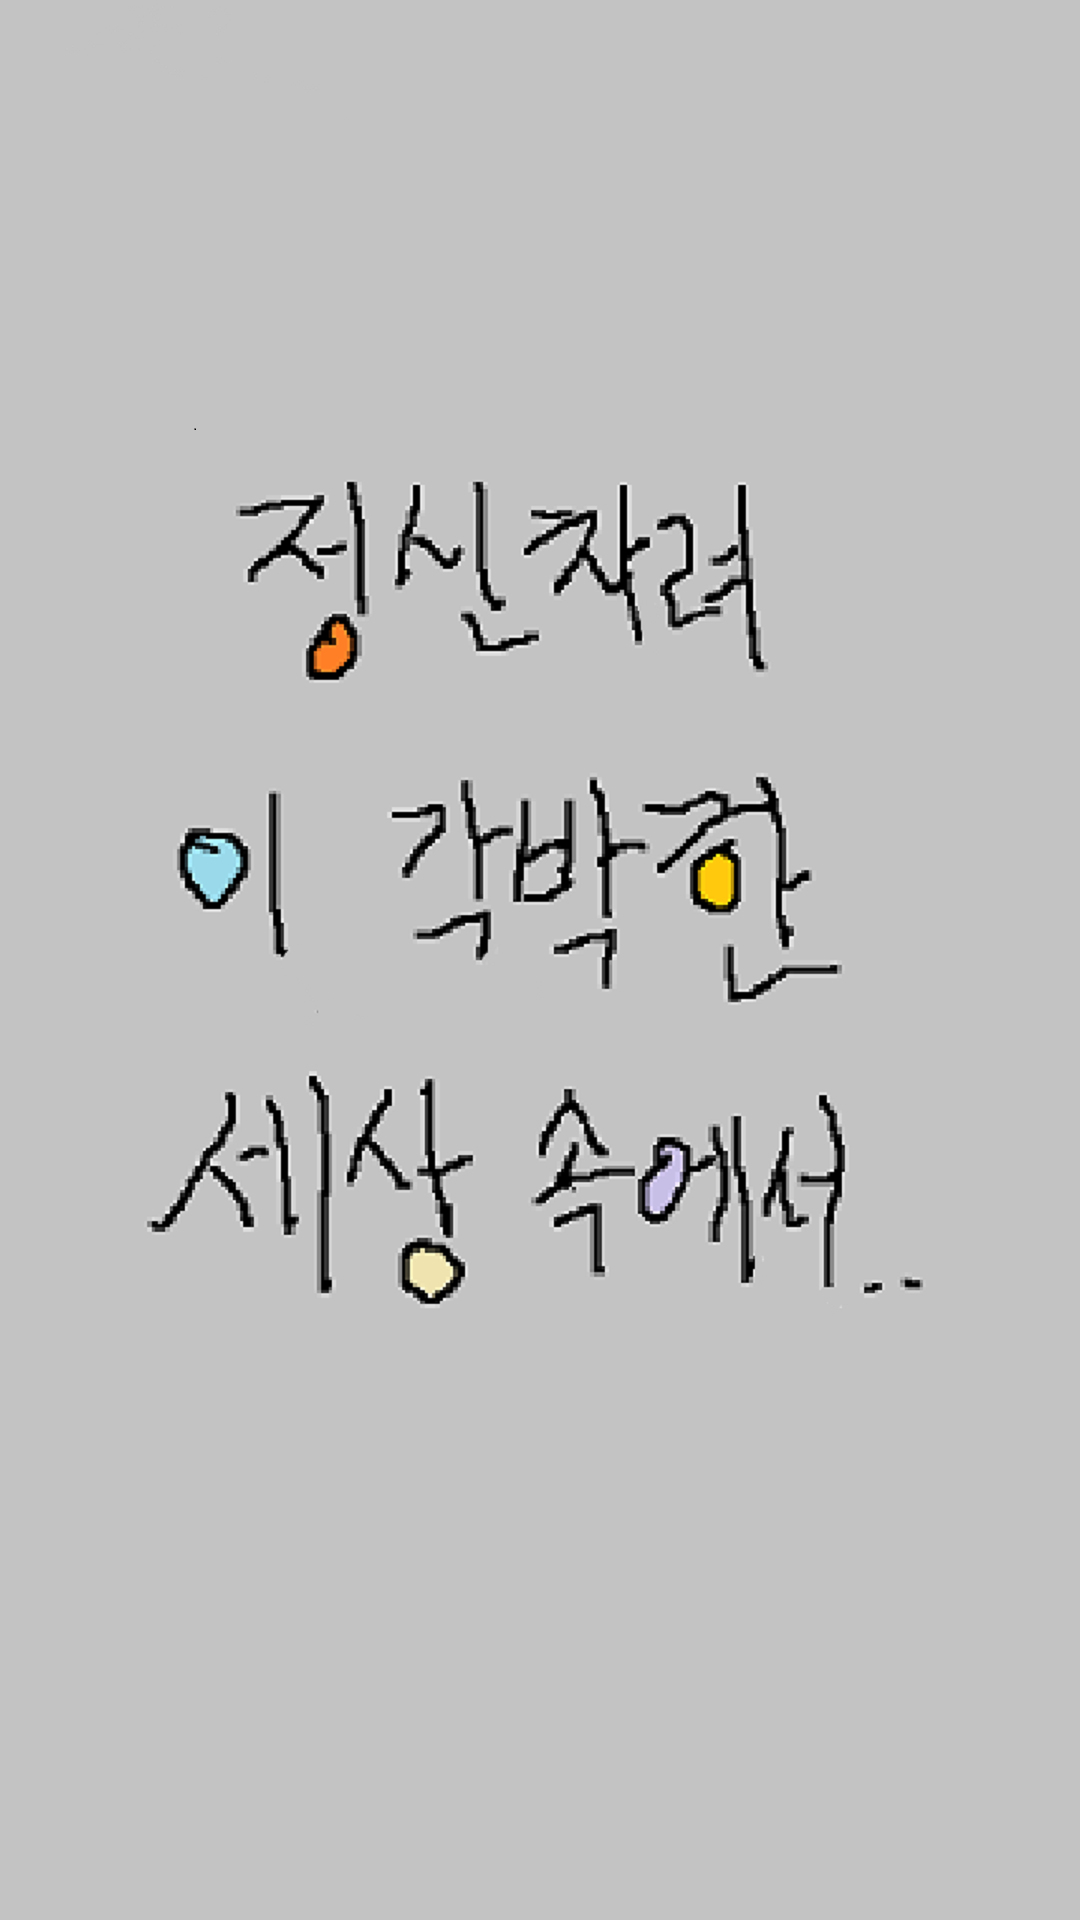 정신차려
이 각박한
세상 속에서..